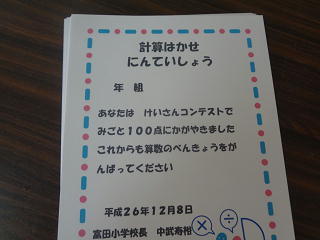 計算はかせ
にんていしょう
年 組
あなたは けいさんコンテストで
みごと100点にかがやきました
これからも算数のべんきょうをが
んばってください
平成26年12月8日
富田小学校長 中武寿裕
× ÷